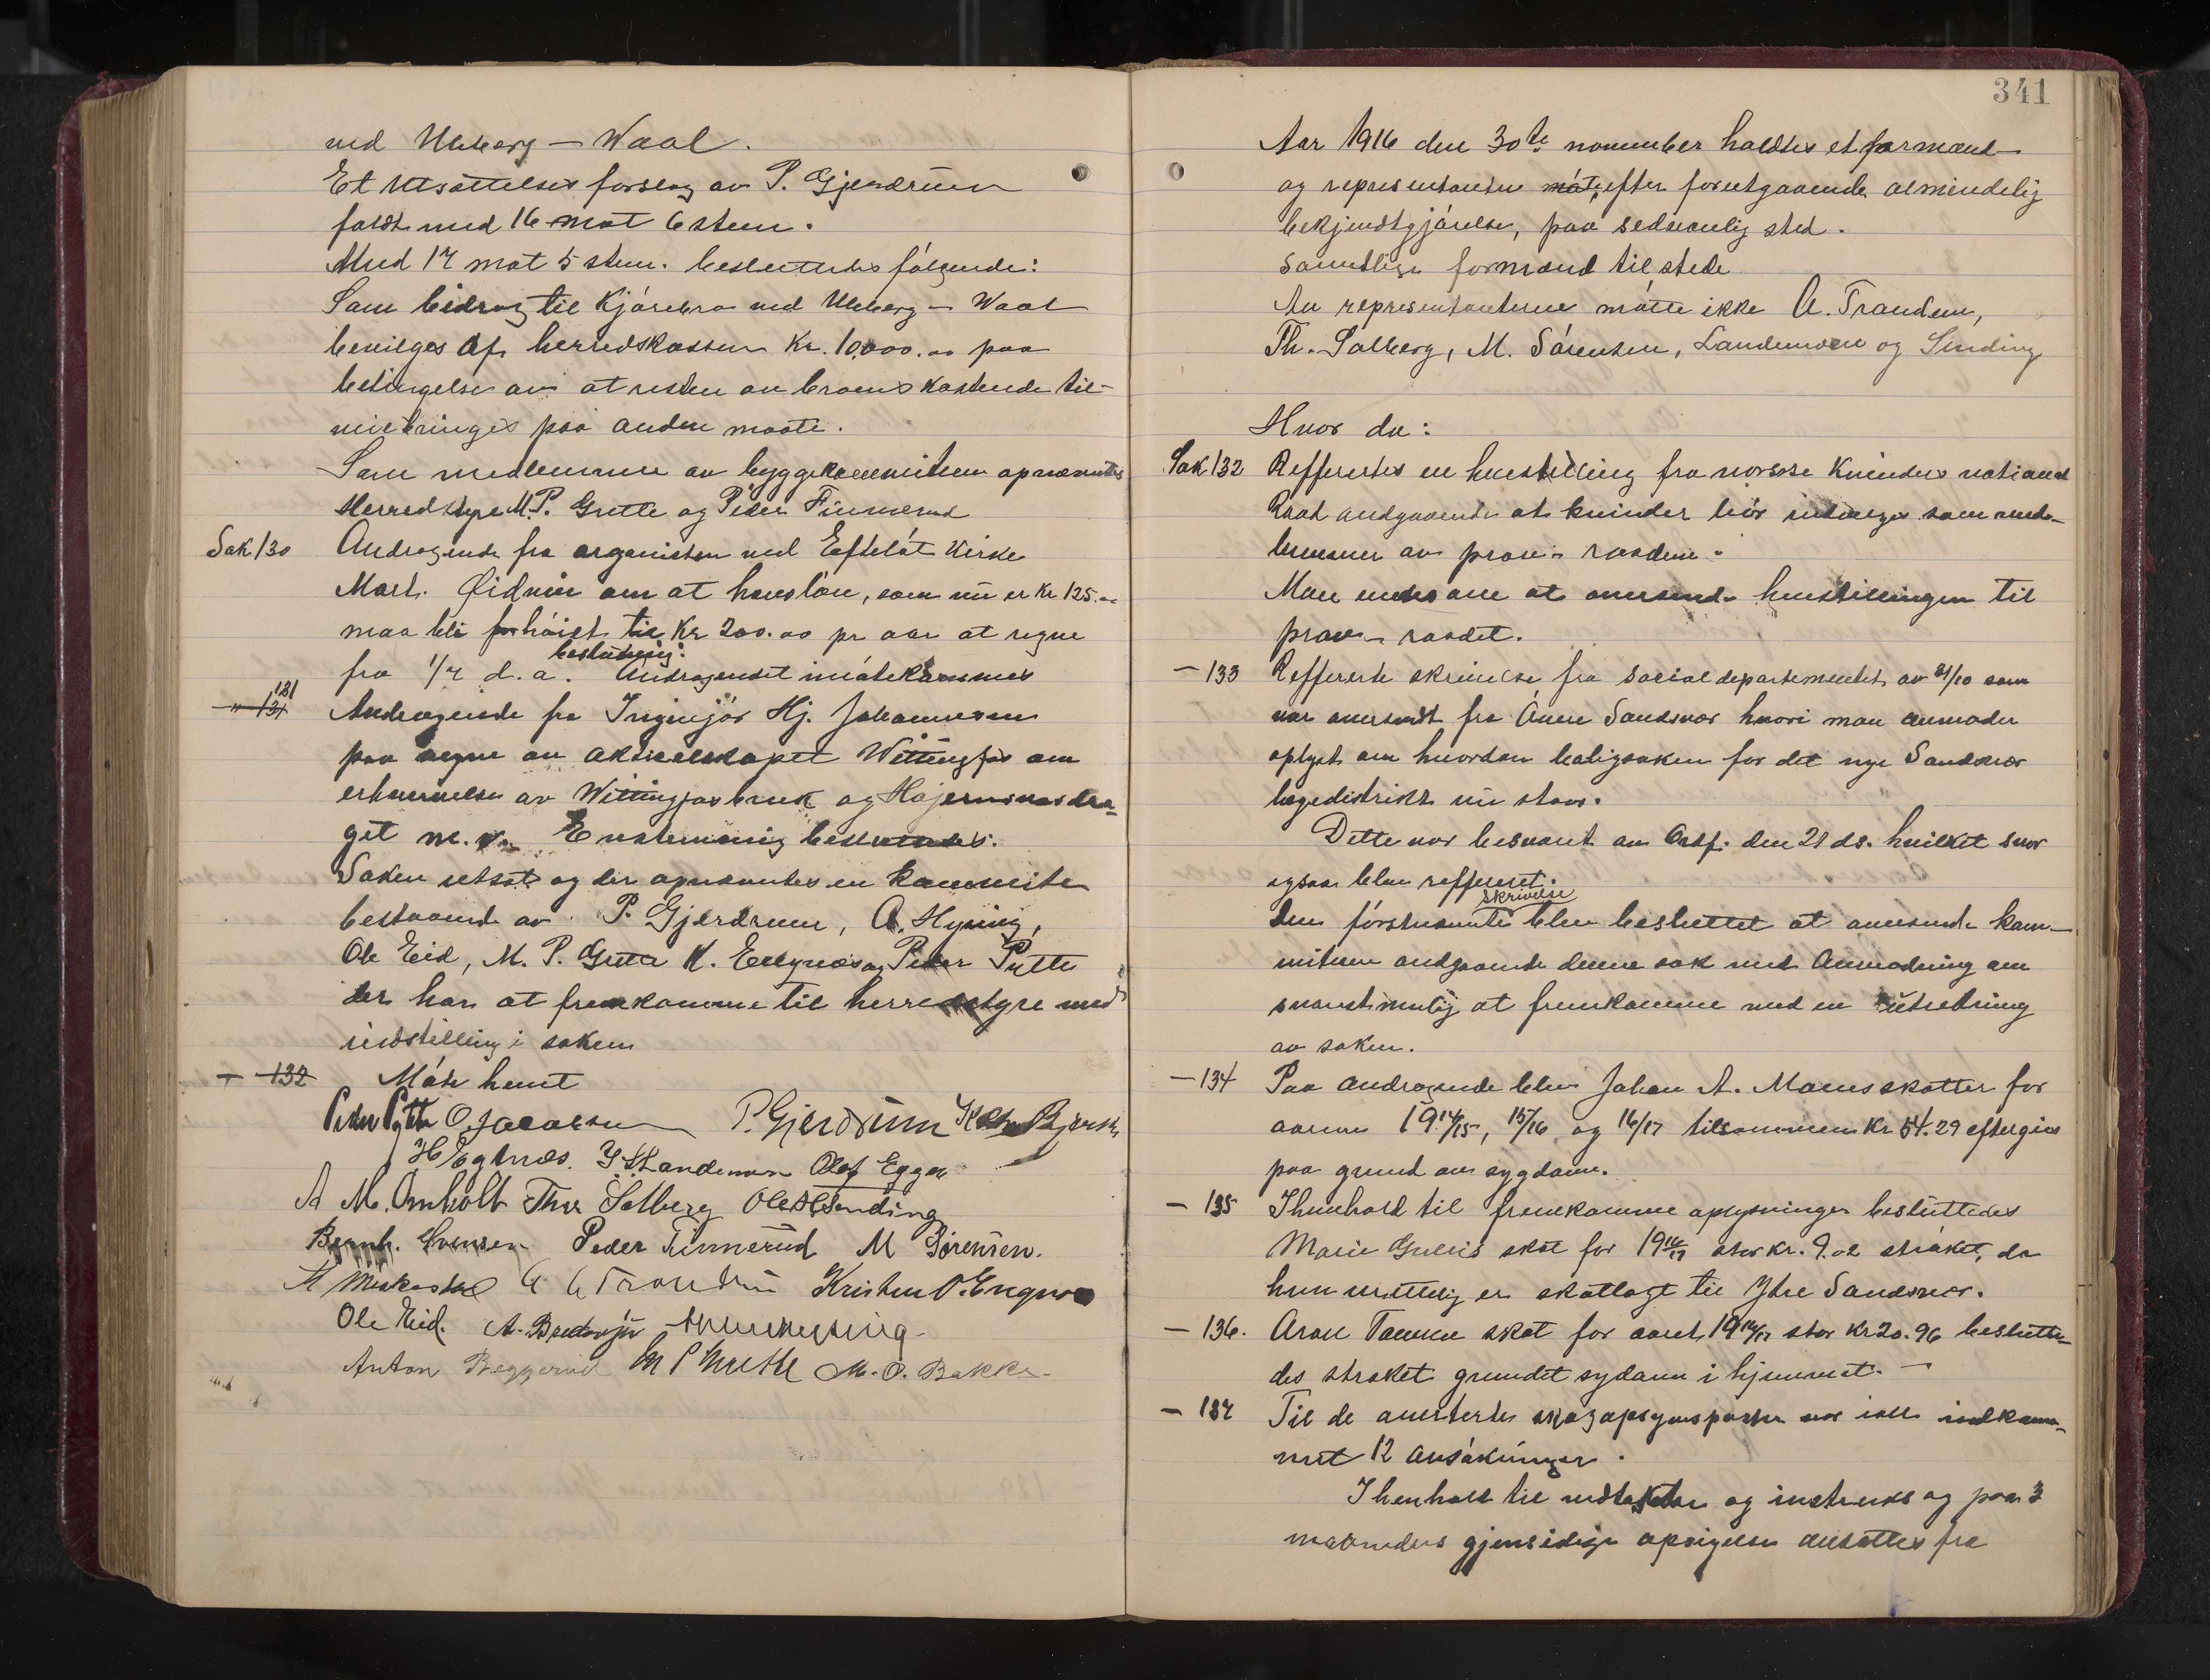 ved Ulleberg – Waal.
Et utsættelses forslag av P. Gjerdrum
faldt med 16 mot 6 stem.
Med 17 mot 5 stem. besluttedes følgende:
Som bidrag til Kjørebro ved Ulleberg – Waal
bevilges af herredskassen Kr. 10,000.00 paa
betingelse av at resten av broens kostende til-
veiebringes paa anden maate.
Som medlemmer av byggekommiteen opnævntes
Herredstyre M.P. Grette og Peder Finnerud
Sak 130 Andragende fra organisten ved Efteløt Kirke
Mart. om at hans løn, som nu er Kr 125.-
maa bli forhöiet til Kr 200.00 pr aar at regne
beslutning:
fra 1/7 d.a. Andragendet imøtekommes
131
- " 131 Andragende fra Ingeniør Hj. Johannesen
paa vegne av aktieselskapet Wittingfos om
erhvervelse av Wittingfos bruk og
get m.v. Enstemmig besluttedes:
Saken utsat og der opnævntes en kommite
bestaaende av P. Gjerdrum, A. Hyning,
Ole Eid, M. P. Grette K. og Peder Pytte
der har at fremkomme til herredstyre med
indstilling i saken
- 132 Møte hevet
Peder Pytte O. Jacobsen P. Gjerdrum
H Eglnæs. Landemoen Olaf Egge
A M. Omholt Thor Solberg Ole H Sending
Bernh. Evensen Peder Finnerud M Sørensen.
Kristen O. Engnæs
Ole Eid. A.
Anton Beggerud M P Grette M. O. Bakke
341
Aar 1916 den 30te november holdtes et formand-
og representanter møte, efter forutgaaende almindelig
bekjendtgjørelse, paa sedvanlig sted.
Samtlige formænd tilstede
Av representanterne møtte ikke A. Trandem,
Th. Solberg, M. Sørensen, Landemoen og Sending
Hvor da:
Sak 132 Refferertes en henstilling fra norske Kvinders national
Raad angaaende at kvinder bør indvælges som med-
lemmer av prov.- raadene.
Man enedes om at oversende henstillingen til
prov.- raadet.
- 133 Reffererte skrivelse fra Socialdepartementet av 31/10 som
var oversendt fra Övre Sandsvær hvori man anmoder
oplyst om hvordan boligsaken for det nye Sandsvær
lægedistrikt nu staar.
Dette var besvaret av Ordf. den 21 ds. hvilket svar
ogsaa blev refferert.
skrivelse
Den förstnævnte blev besluttet at oversende kom-
miteen angaaende denne sak med Anmodning om
snarest mulig at fremkomme med en utredning
av saken.
- 134 Paa andragende blev Johan A. Moens skatter for
aarene 1914/15, 15/16 og 16/17 tilsammen Kr 54.29 eftergivet
paa grund av sygdom.
- 135 I henhold til fremkomne oplysninger besluttedes
Marie Gullis skat for 1916/17 stor kr. 9.02 strøket, da
hun urettelig er skatlagt til Ytre Sandsvær.
- 136. Aron skat for aaret 1916/17 stor Kr 20.96 beslutte-
des strøket grundet sydom i hjemmet. -
- 137 Til de averterte skogopsynsposter var ialt indkom-
met 12 ansökninger.
I henhold til vedtekter og instruks og paa 3
maaneders gjensidige opsigelse ansættes fra